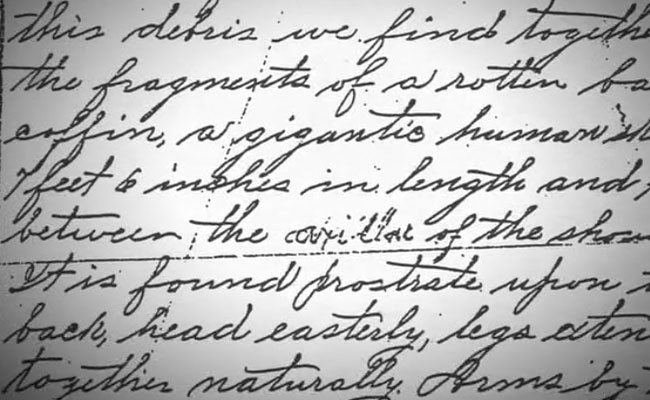 this debris we find togethe
the fragments of a rotten ba
coffin, a gigantic human sk
7 feet 6 inches in length and
between the of the shou
It is found prostrate upon
back, head easterly, legs exten
together naturally. Arms by